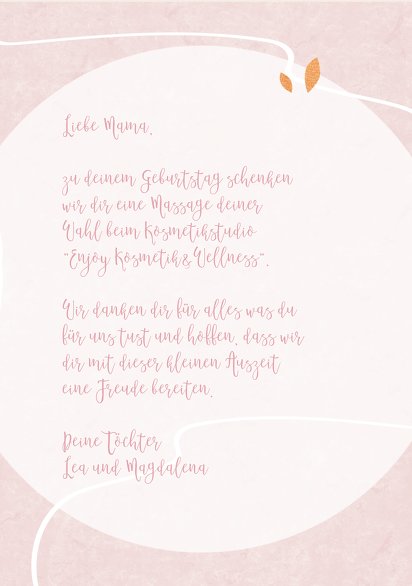 Liebe Mama,
zu deinem Geburtstag schenken
wir dir eine Massage deiner
Wahl beim Kosmetikstudio
"Enjoy Kosmetik&Wellness".
Wir danken dir für alles was du
für uns tust und hoffen, dass wir
dir mit dieser kleinen Auszeit
eine Freude bereiten.
Deine Töchter
Lea und Magdalena